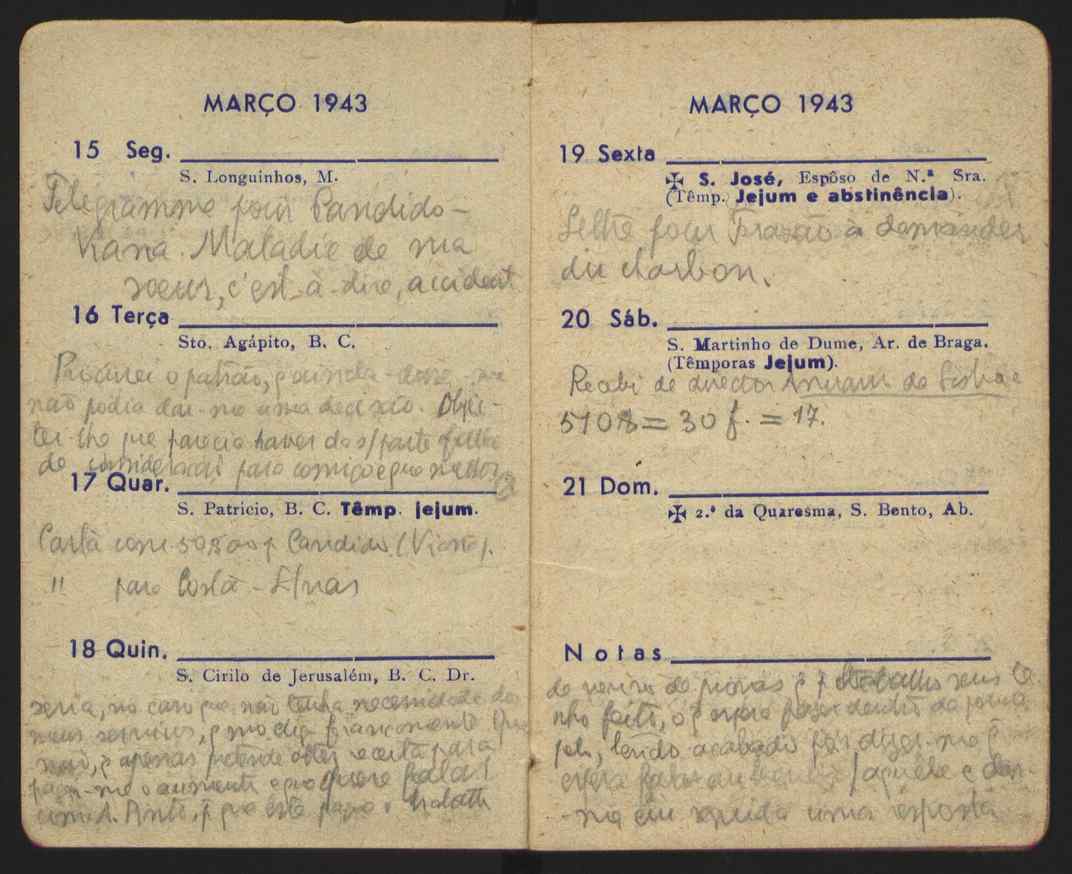 MARÇO 1943
15 Seg.
S. Longuinhos, M.
Telegramme pour Candido-
Viana. Maladie de ma
soeur, c'est-à-dire, accident
16 Terça
Sto. Agápito, B. C.
Procurei o patrão, q ainda disse
não podia dar-me uma decisão. Objec-
tei-lhe que parecia haver da s/parte falta
de consideração para comigo e que
17 Quar.
S. Patricio, B. C. Têmp. jejum.
Carta com 50$00 p Candido (Viana).
" para Costa - Elvas
18 Quin.
S. Cirilo de Jerusalém, B. C. Dr.
seria, no caso que não tenha necessidade dos
meus serviços, q mo diga francamente. Que
não, q apenas pretende obter receita para
pagar-me o aumento e que quere falar
com A. Pinto, p que este pague o trabalho
MARÇO 1943
19 Sexta
✠ S. José, Espôso de N.ª Sra.
(Têmp. Jejum e abstinência).
Lettre pour Frazão à demander
du charbon.
20 Sáb.
S. Martinho de Dume, Ar. de Braga.
(Têmporas Jejum).
Recebi de director Anuario de Lisboa
510$ = 30 f. = 17.
21 Dom.
✠ 2.ª da Quaresma, S. Bento, Ab.
Notas
de revisão de provas q p trabalhos seus te-
nho feito, o q espera fazer dentro da
tendo acabado por dizer-me q
espera falar àquele e dar-
-me em seguida uma resposta